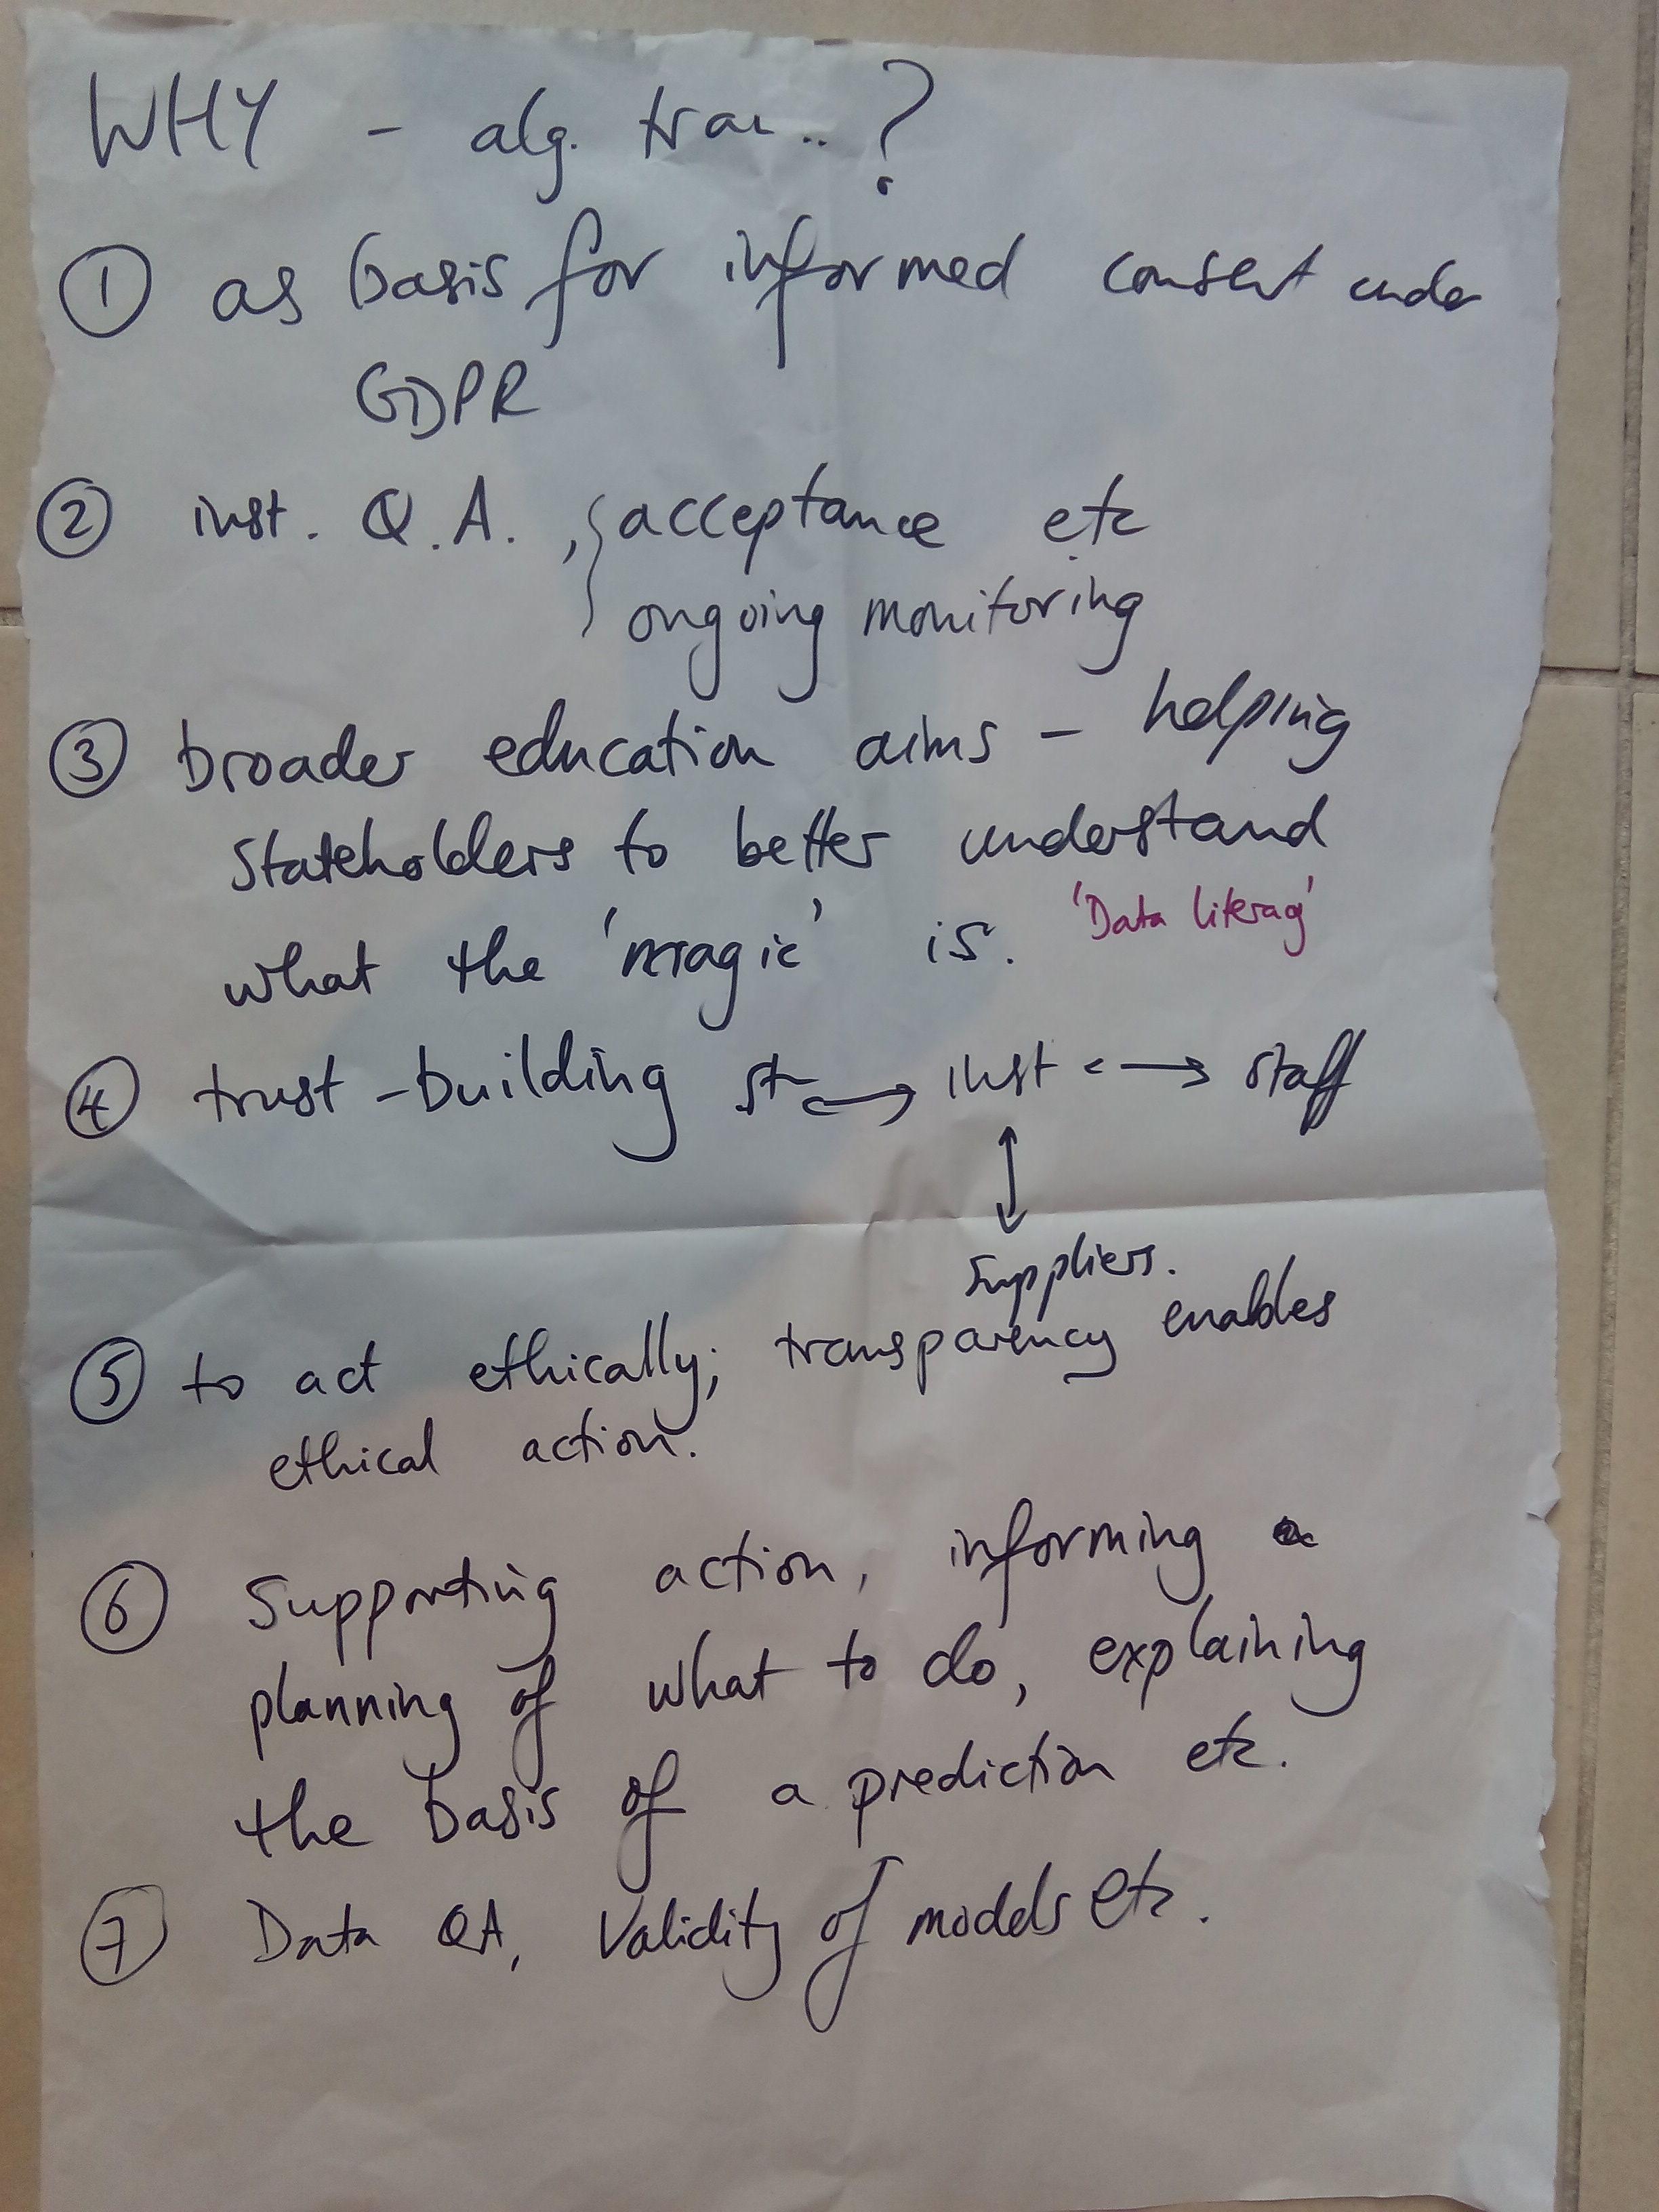 WHY - alg. tran..?
① as basis for informed consent under
GDPR
② inst. Q.A., { acceptance etc
ongoing monitoring
③ broader education aims - helping
stakeholders to better understand
what the 'magic' is. 'Data literacy'
④ trust-building st ↔ inst ↔ staff
↕
suppliers.
⑤ to act ethically; transparency enables
ethical action.
⑥ Supporting action, informing
planning of what to do, explaining
the basis of a prediction etc.
⑦ Data QA, Validity of models etc.